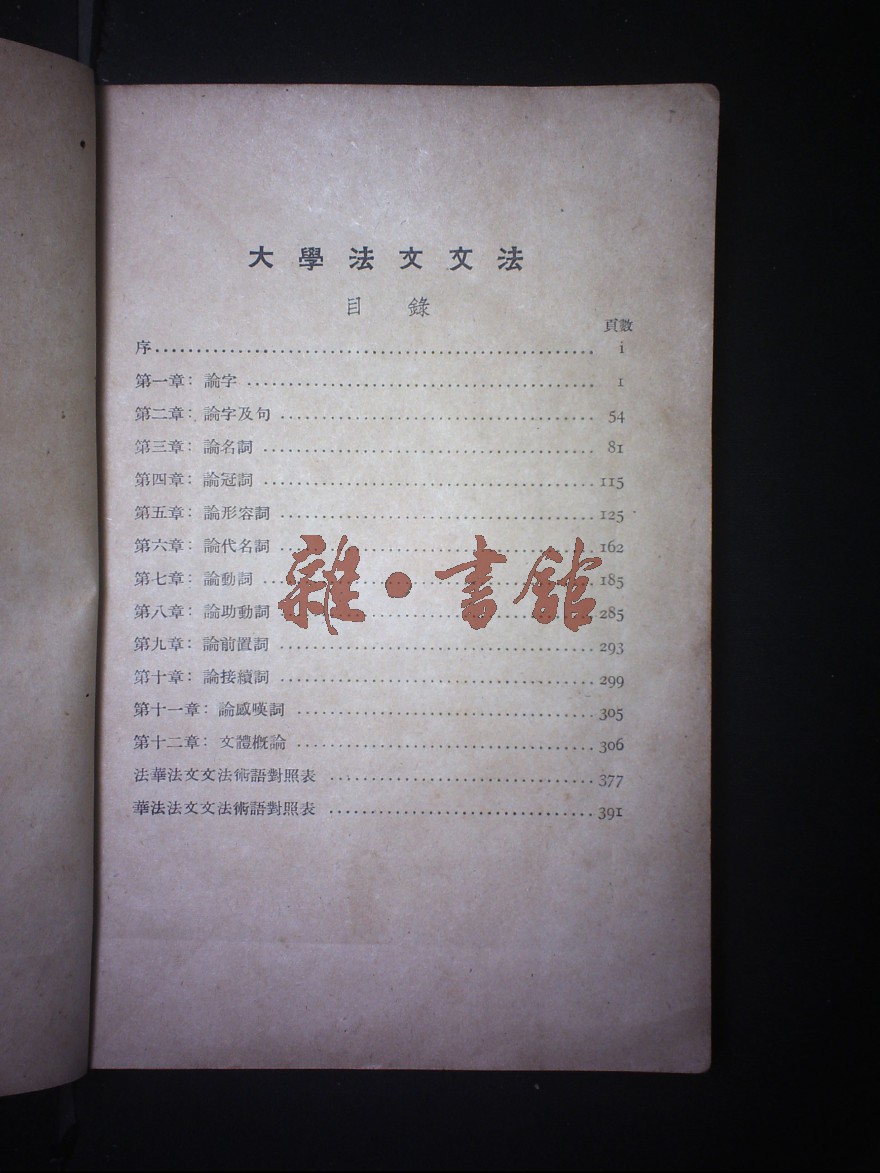 大學法文文法
目錄
頁數
序 i
第一章：論字 1
第二章：論字及句 54
第三章：論名詞 81
第四章：論冠詞 115
第五章：論形容詞 125
第六章：論代名詞 162
第七章：論動詞 185
第八章：論助動詞 285
第九章：論前置詞 293
第十章：論接續詞 299
第十一章：論感嘆詞 305
第十二章：文體概論 306
法華法文文法術語對照表 377
華法法文文法術語對照表 391
雜·書館